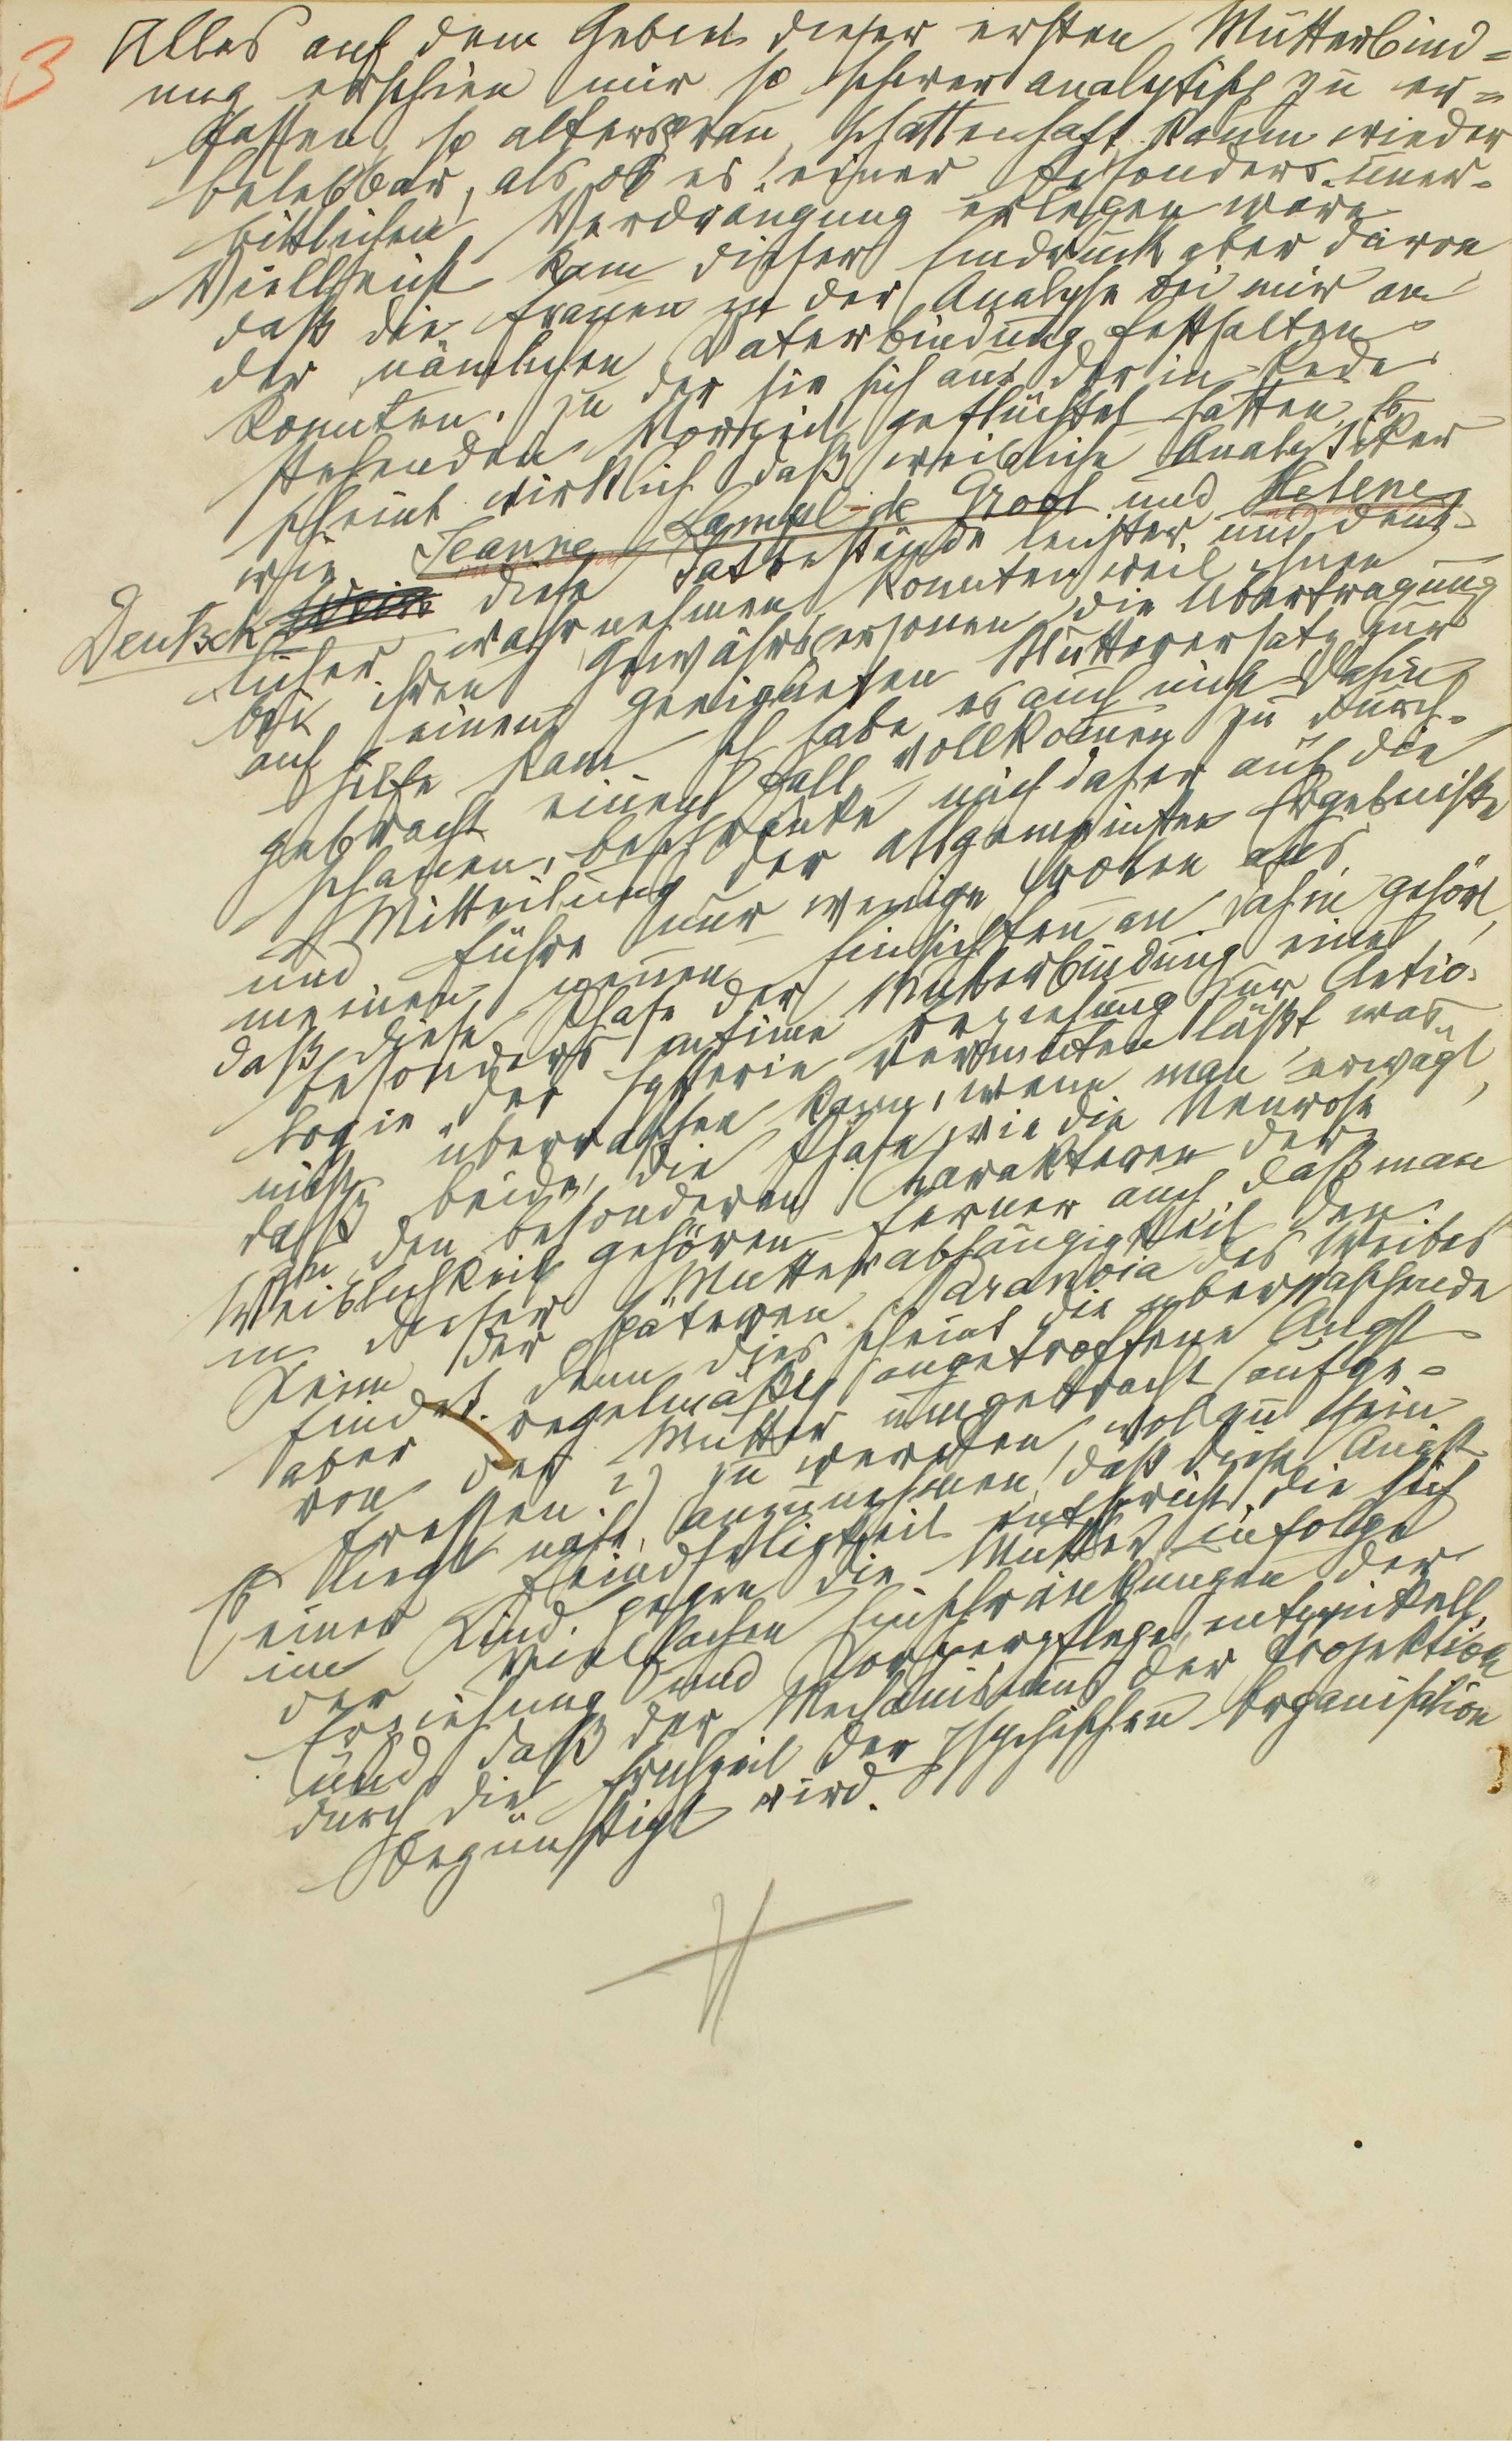 3
Alles auf dem Gebiet dieser ersten Mutterbind=
ung erschien mir so schwer analytisch zu er=
fassen, so altersgrau, schattenhaft, kaum wieder
belebbar, als ob es einer besonders uner-
bittlichen Verdrängung erlegen wäre.
Vielleicht kam dieser Eindruck aber davon,
daß die Frauen in der Analyse bei mir an
der nämlichen Vaterbindung festhalten
konnten, zu der sie sich aus der in Rede
stehenden Vorzeit geflüchtet hatten. Es
scheint wirklich, daß weibliche Analytiker
wie Jeanne Lampl-de Groot und Helene
Deutsch diese Tatbestände leichter und deut-
licher wahrnehmen konnten, weil ihnen
bei ihren Gewährspersonen die Übertragung
auf einen geeigneten Mutterersatz zur
Hilfe kam. Ich habe es auch nicht dahin
gebracht, einen Fall vollkommen zu durch-
schauen, beschränke mich daher auf die
Mitteilung der allgemeinsten Ergebnisse
und führe nur wenige Proben aus
meinen neuen Einsichten an. Dahin gehört,
daß diese Phase der Mutterbindung eine
besonders intime Beziehung zur Aetio-
logie der Hysterie vermuten läßt, was
nicht überraschen kann, wenn man erwägt,
daß beide, die Phase wie die Neurose
zu den besonderen Charakteren der
Weiblichkeit gehören, ferner auch, daß man
in dieser Mutterabhängigkeit den
Keim der späteren Paranoia des Weibes
findet. Denn dies scheint die überraschende
aber regelmäßig angetroffene Angst
von der Mutter umgebracht (aufge-
fressen?) zu werden, wol zu sein.
Es liegt nahe, anzunehmen, daß diese Angst
einer Feindseligkeit entspricht, die sich
im Kind gegen die Mutter infolge
der vielfachen Einschränkungen der
Erziehung und Körperpflege entwickelt,
und daß der Mechanismus der Projektion
durch die Frühzeit der psychischen Organisation
begünstigt wird.